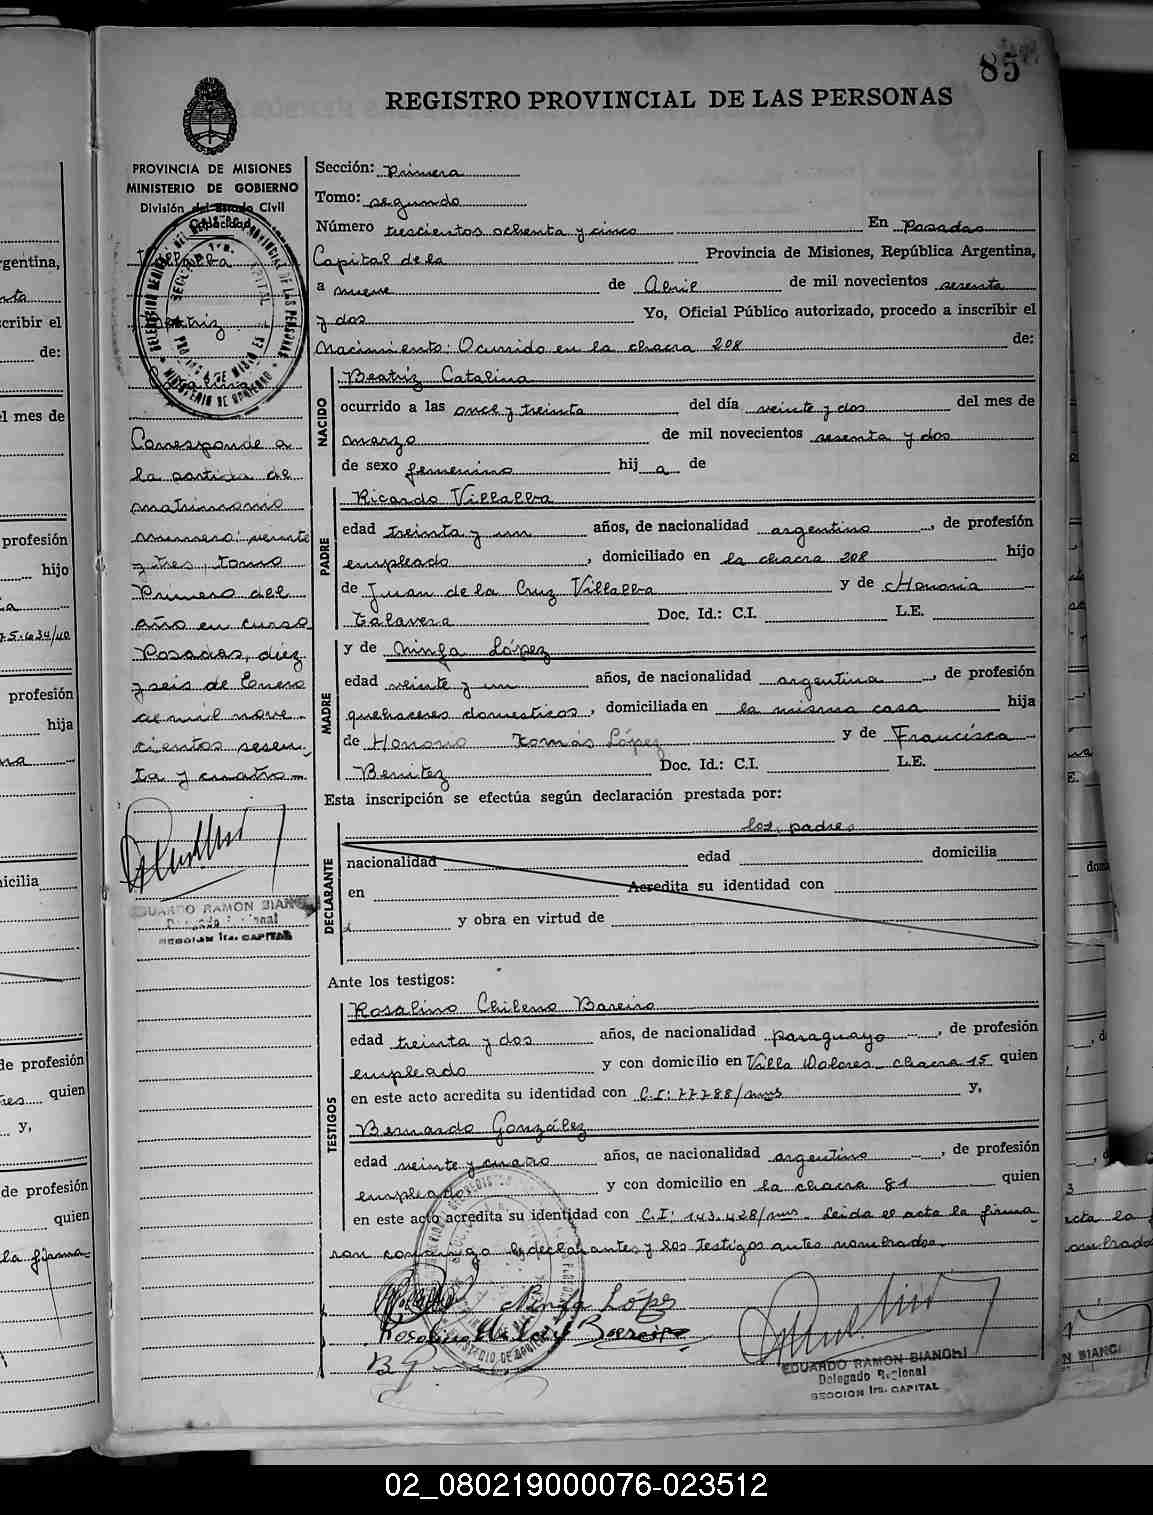 85
REGISTRO PROVINCIAL DE LAS PERSONAS
PROVINCIA DE MISIONES
MINISTERIO DE GOBIERNO
División del Estado Civil
y Capacidad
Villalba
Beatriz
Catalina
Corresponde a
la partida de
matrimonio
número: veinte
y tres, tomo
Primero del
año en curso
Posadas, diez
y seis de Enero
de mil nove-
cientos sesen-
ta y cuatro
EDUARDO RAMON BIANCHI
Delegado Regional
SECCION 1ra. CAPITAL
Sección: Primera
Tomo: segundo
Número trescientos ochenta y cinco En Posadas
Capital de la Provincia de Misiones, República Argentina,
a nueve de Abril de mil novecientos sesenta
y dos Yo, Oficial Público autorizado, procedo a inscribir el
Nacimiento: Ocurrido en la chacra 208 de:
NACIDO
Beatriz Catalina
ocurrido a las once y treinta del día veinte y dos del mes de
marzo de mil novecientos sesenta y dos
de sexo femenino hij a de
PADRE
Ricardo Villalba
edad treinta y un años, de nacionalidad argentino, de profesión
empleado, domiciliado en la chacra 208 hijo
de Juan de la Cruz Villalba y de Honoria
Talavera Doc. Id.: C.I. L.E.
MADRE
y de Ninfa López
edad veinte y un años, de nacionalidad argentina, de profesión
quehaceres domesticos, domiciliada en la misma casa hija
de Honorio Tomás López y de Francisca
Benitez Doc. Id.: C.I. L.E.
Esta inscripción se efectúa según declaración prestada por:
DECLARANTE
los padres
nacionalidad edad domicilia
en Acredita su identidad con
y obra en virtud de
Ante los testigos:
TESTIGOS
Rosalino Chileno Bareiro
edad treinta y dos años, de nacionalidad paraguayo, de profesión
empleado y con domicilio en Villa Dolores chacra 15 quien
en este acto acredita su identidad con C.I: 77788/mns y,
Bernardo González
edad veinte y cuatro años, de nacionalidad argentino, de profesión
empleado y con domicilio en la chacra 81 quien
en este acto acredita su identidad con C.I: 143.428/mns. Leida el acta la firma-
ron conmigo los declarantes y los testigos antes nombrados.
Ninfa López
Rosalino Bareiro
B G
EDUARDO RAMON BIANCHI
Delegado Regional
SECCION 1ra. CAPITAL
02_080219000076-023512